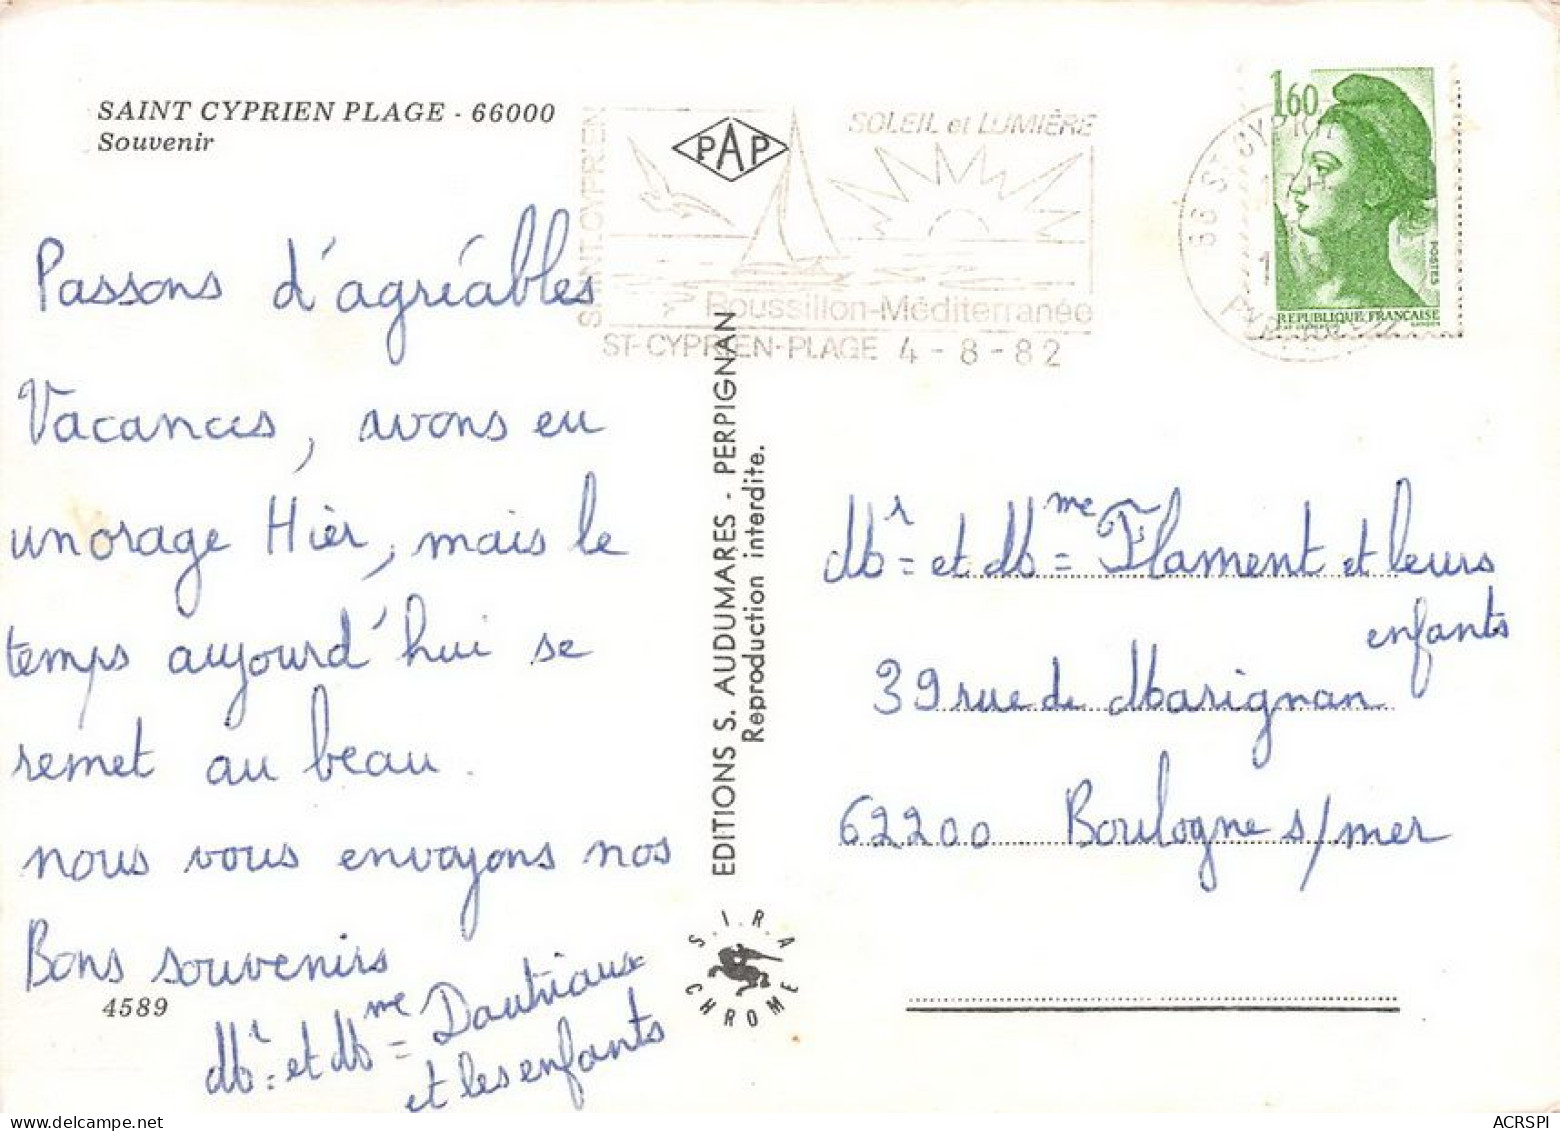 SAINT CYPRIEN PLAGE - 66000
Souvenir
PAP
SAINT-CYPRIEN
SOLEIL et LUMIÈRE
Roussillon-Méditerranée
ST-CYPRIEN-PLAGE 4 - 8 - 82
66 ST CYPRIEN
1,60
POSTES
REPUBLIQUE FRANÇAISE
Passons d'agréables
Vacances, avons eu
un orage Hier, mais le
temps aujourd'hui se
remet au beau.
nous vous envoyons nos
Bons souvenirs
Mr et Mme Dautriaux
et les enfants
4589
EDITIONS S. AUDUMARES - PERPIGNAN
Reproduction interdite.
S.I.R.A
CHROME
Mr et Mme Flament et leurs
enfants
39 rue de Marignan
62200 Boulogne s/mer
ACRSPI